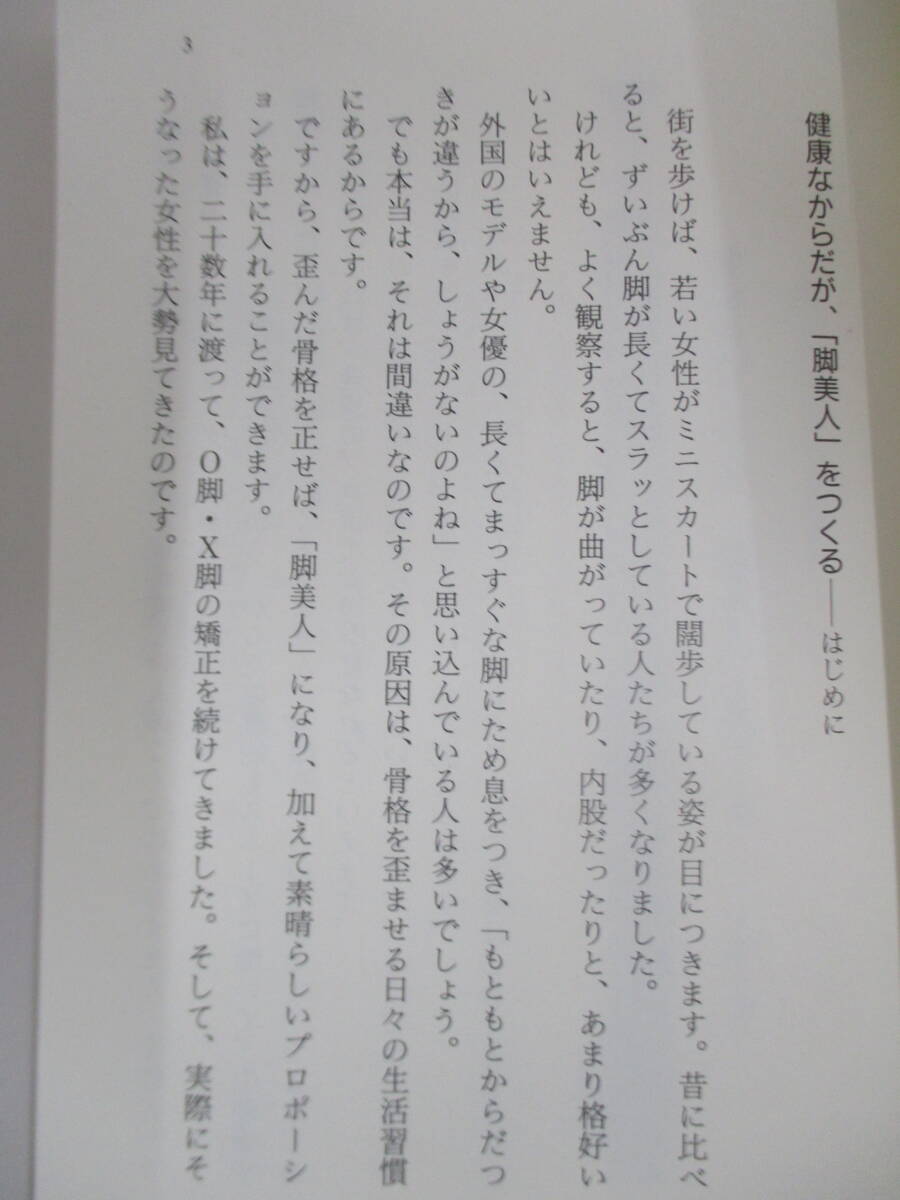 健康なからだが、「脚美人」をつくる――はじめに
街を歩けば、若い女性がミニスカートで闊歩している姿が目につきます。昔に比べ
ると、ずいぶん脚が長くてスラッとしている人たちが多くなりました。
けれども、よく観察すると、脚が曲がっていたり、内股だったりと、あまり格好い
いとはいえません。
外国のモデルや女優の、長くてまっすぐな脚にため息をつき、「もともとからだつ
きが違うから、しょうがないのよね」と思い込んでいる人は多いでしょう。
でも本当は、それは間違いなのです。その原因は、骨格を歪ませる日々の生活習慣
にあるからです。
ですから、歪んだ骨格を正せば、「脚美人」になり、加えて素晴らしいプロポーシ
ョンを手に入れることができます。
私は、二十数年に渡って、O脚・X脚の矯正を続けてきました。そして、実際にそ
うなった女性を大勢見てきたのです。
3